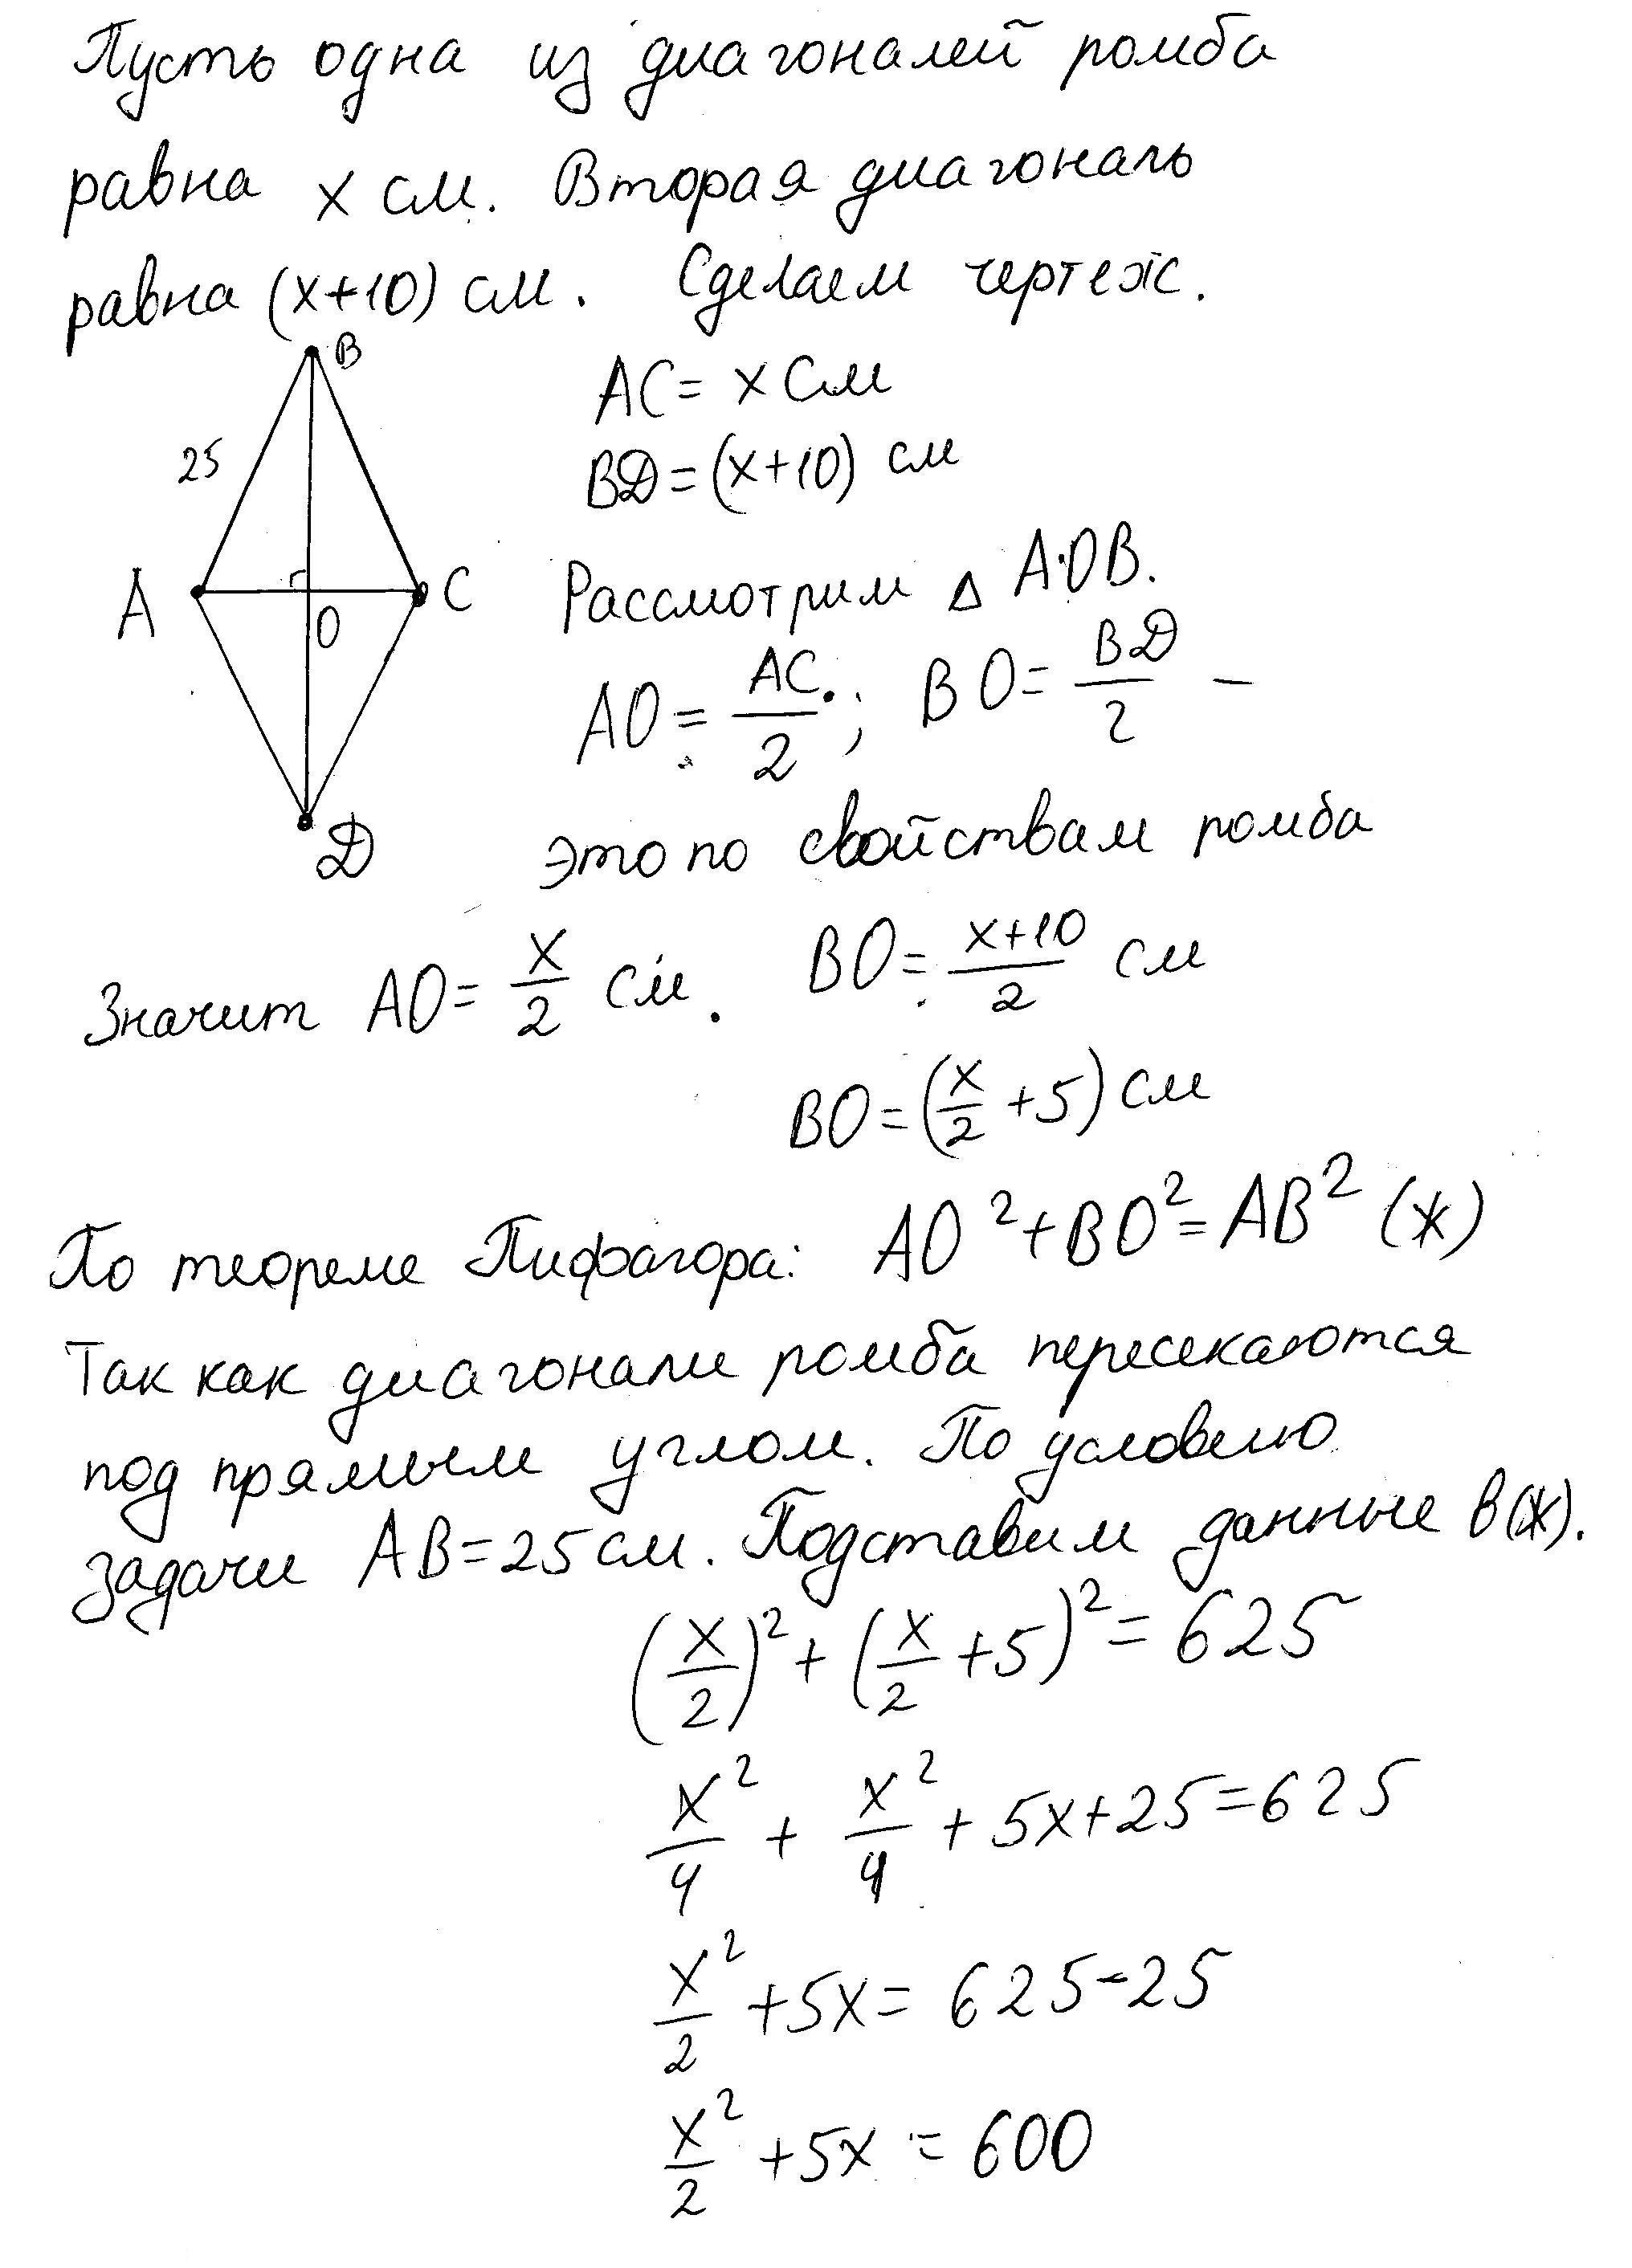 Пусть одна из диагоналей ромба
равна x см. Вторая диагональ
равна (x+10) см. Сделаем чертеж.
B
AC = x см
25
BD = (x+10) см
A
C
O
Рассмотрим △ AOB.
AO = AC/2; BO = BD/2 –
D
это по свойствам ромба
Значит AO = x/2 см. BO = (x+10)/2 см
BO = (x/2 + 5) см
По теореме Пифагора: AO² + BO² = AB² (*)
Так как диагонали ромба пересекаются
под прямым углом. По условию
задачи AB = 25 см. Подставим данные в (*).
(x/2)² + (x/2 + 5)² = 625
x²/4 + x²/4 + 5x + 25 = 625
x²/2 + 5x = 625 - 25
x²/2 + 5x = 600